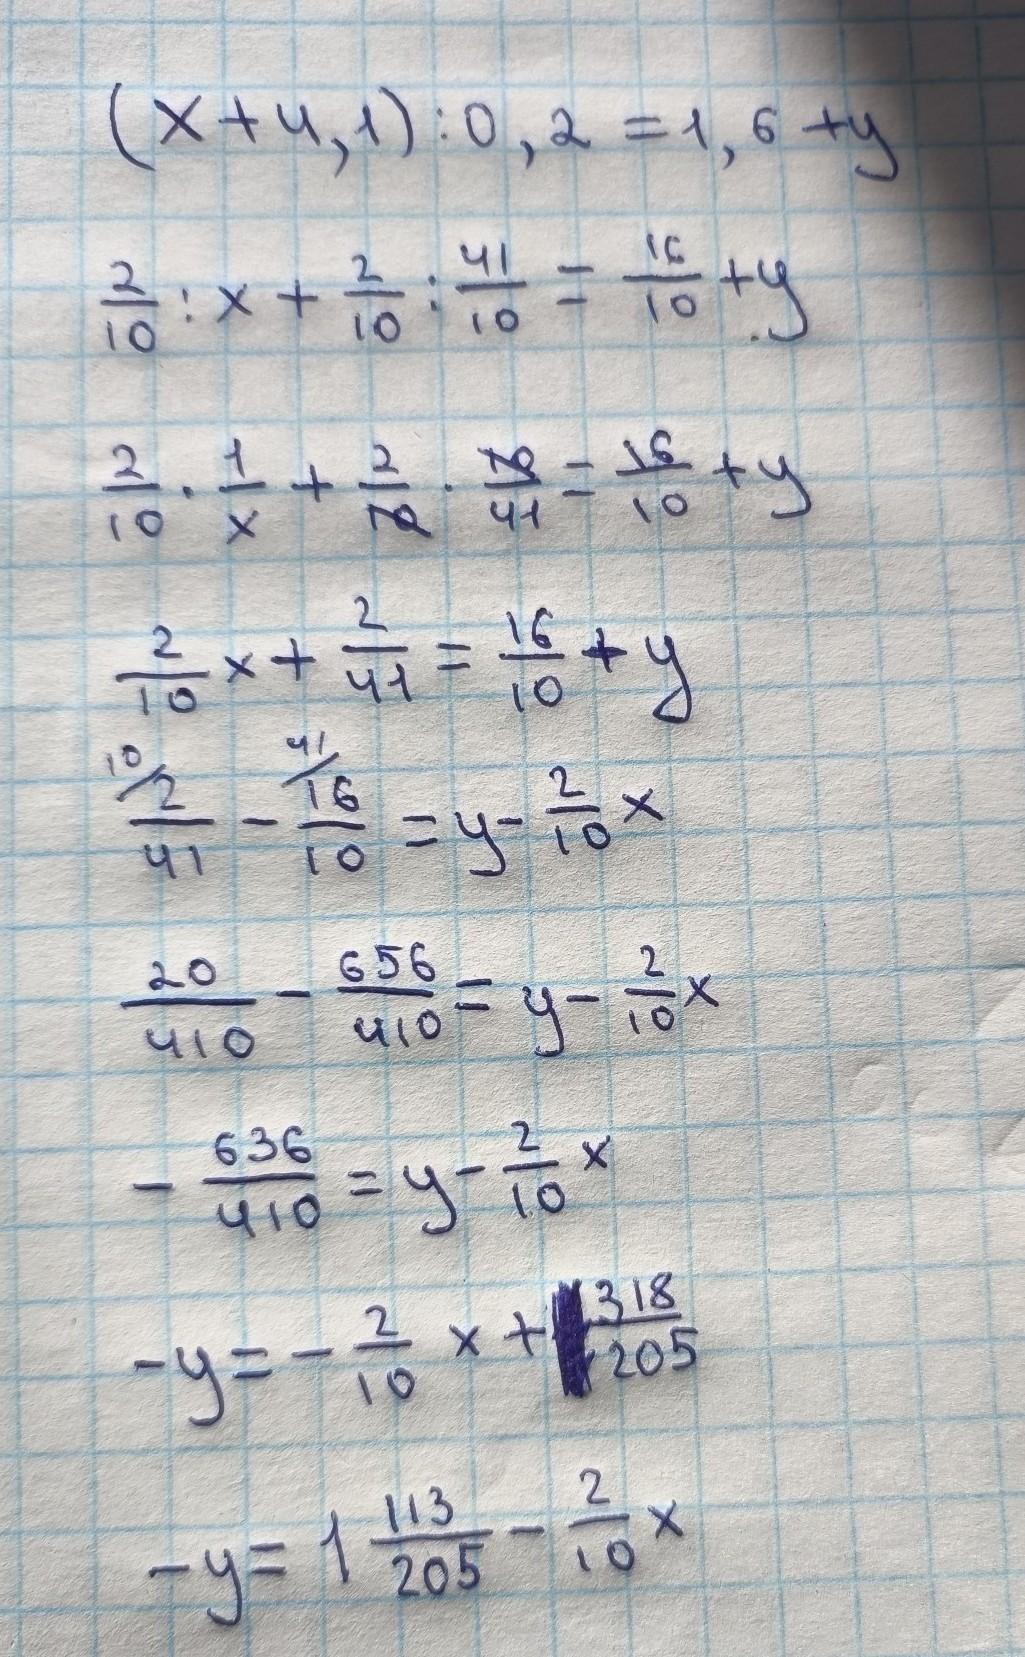 (x+4,1):0,2=1,6+y
2/10 : x + 2/10 : 41/10 = 16/10 + y
2/10 · 1/x + 2/10 · 10/41 = 16/10 + y
2/10 x + 2/41 = 16/10 + y
10/ 2/41 - 41/ 16/10 = y - 2/10 x
20/410 - 656/410 = y - 2/10 x
- 636/410 = y - 2/10 x
-y = - 2/10 x + 318/205
-y = 1 113/205 - 2/10 x